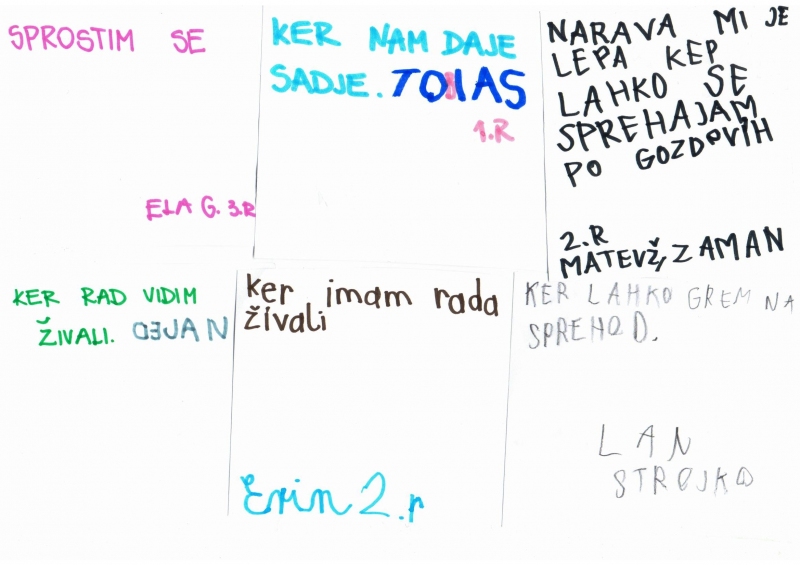 SPROSTIM SE
ELA G. 3.R
KER NAM DAJE
SADJE. TOBIAS
1.R
NARAVA MI JE
LEPA KER
LAHKO SE
SPREHAJAM
PO GOZDOVIH
2.R
MATEVŽ, ZAMAN
KER RAD VIDIM
ŽIVALI. DEJAN
ker imam rada
živali
Erin 2.r
KER LAHKO GREM NA
SPREHOD.
LAN
STROJKO